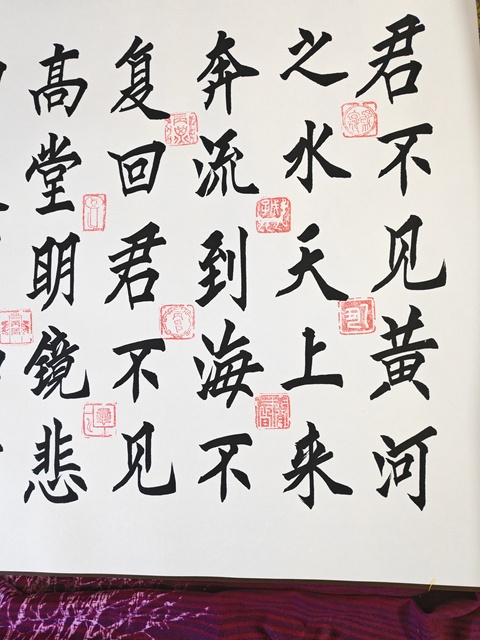 君不见黄河
之水天上来
奔流到海不
复回君不见
高堂明镜悲